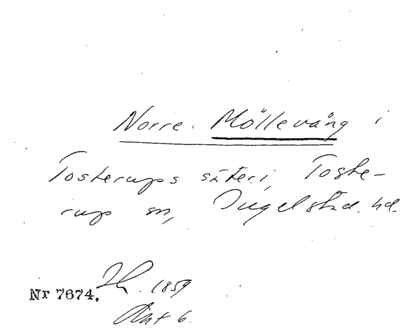 Norre. Möllevång i
Tosterups säteri, Toste-
rup sn, Ingelstad. hd.
Nr 7674. 1859
Akt 6.